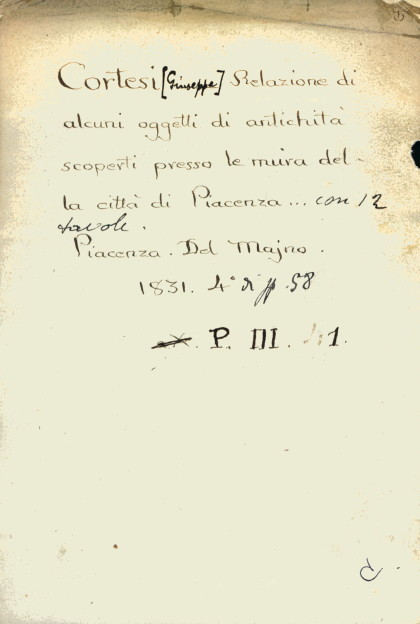 Cortesi [Giuseppe] Relazione di
alcuni oggetti di antichità
scoperti presso le mura del-
la città di Piacenza... con 12
tavole.
Piacenza. Del Majno.
1831. 4° di pp. 58
P. III. 1.